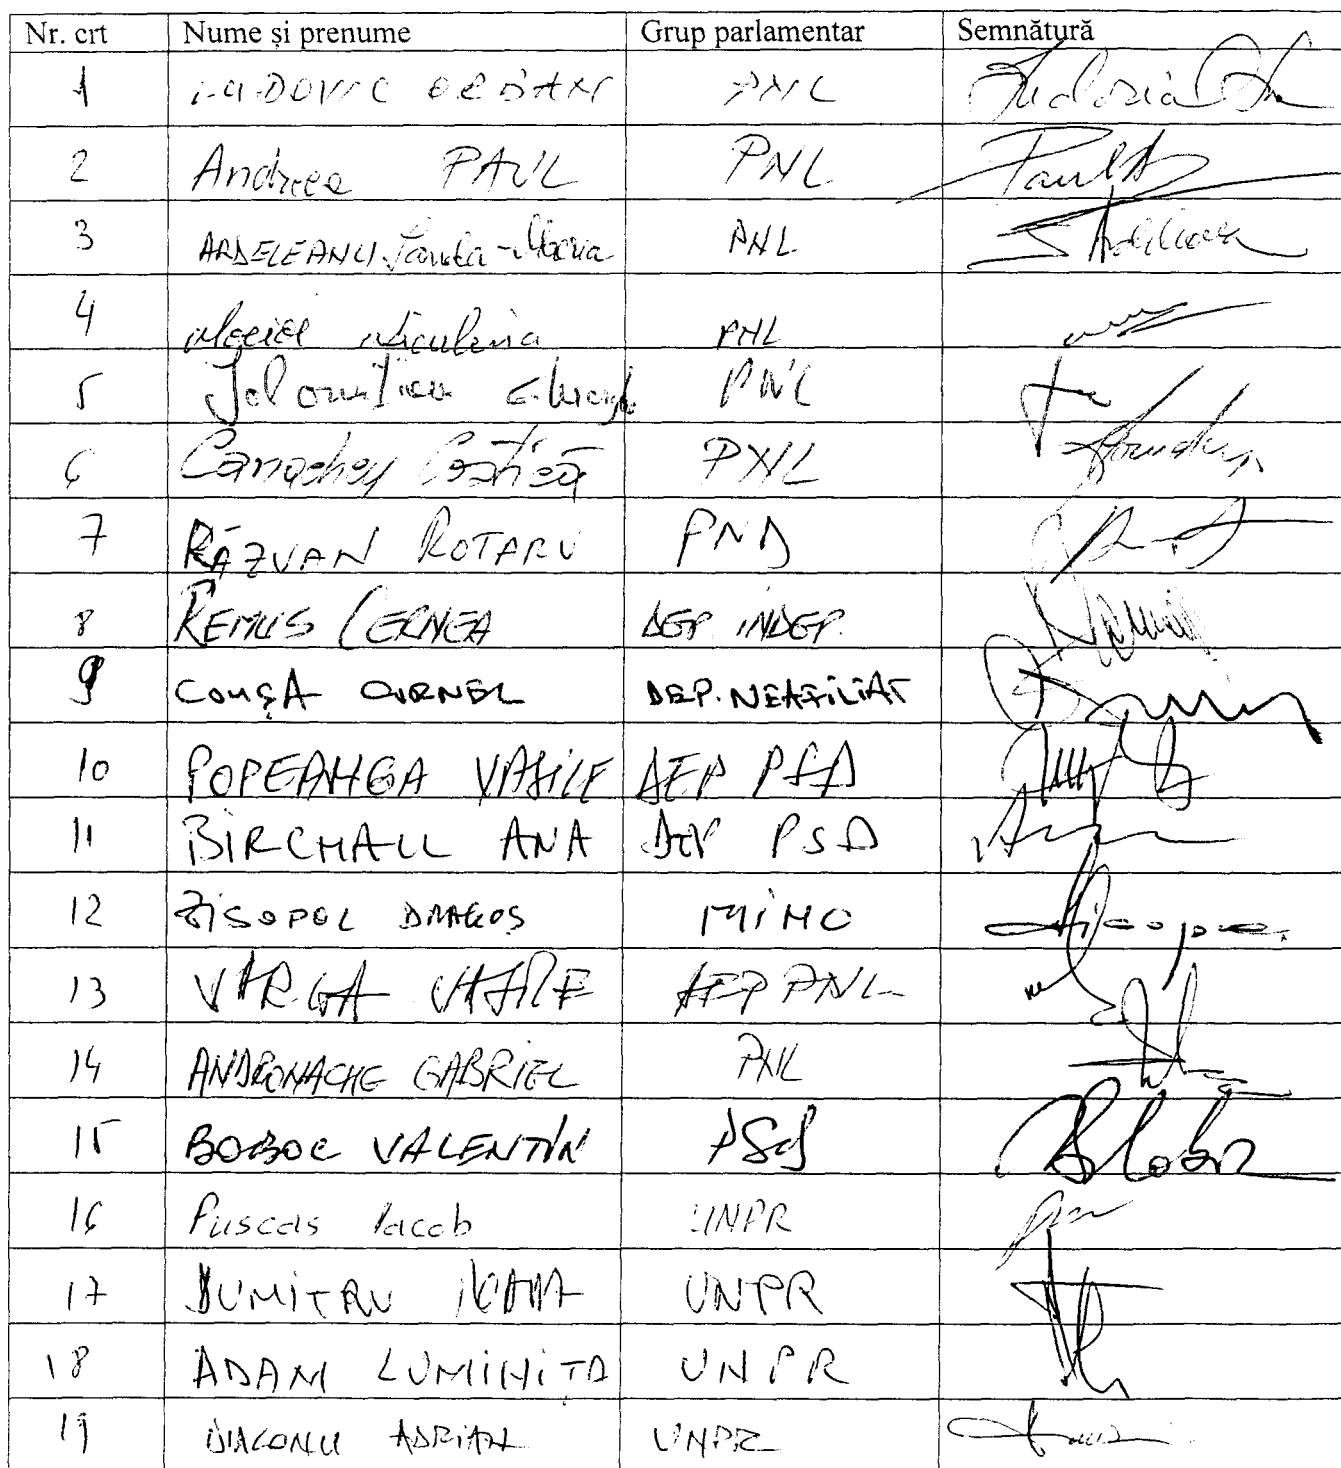 Nr. crt Nume și prenume Grup parlamentar Semnătură
1 LUDOVIC ORBAN PNL
2 Andreea PAUL PNL
3 ARDELEANU Sanda-Maria PNL
4 PNL
5 Ialomițianu Gheorghe PNL
6 Canacheu Costică PNL
7 RĂZVAN ROTARU PND
8 REMUS CERNEA DEP INDEP.
9 COMȘA CORNEL DEP. NEAFILIAT
10 POPEANGA VASILE DEP PSD
11 BIRCHALL ANA DEP PSD
12 ZISOPOL DRAGOȘ MINO
13 VARGA VASILE DEP PNL
14 ANDRONACHE GABRIEL PNL
15 BOBOC VALENTIN PSD
16 Puscas Iacob UNPR
17 DUMITRU IOANA UNPR
18 ADAM LUMINIȚA UNPR
19 DIACONU ADRIAN UNPR